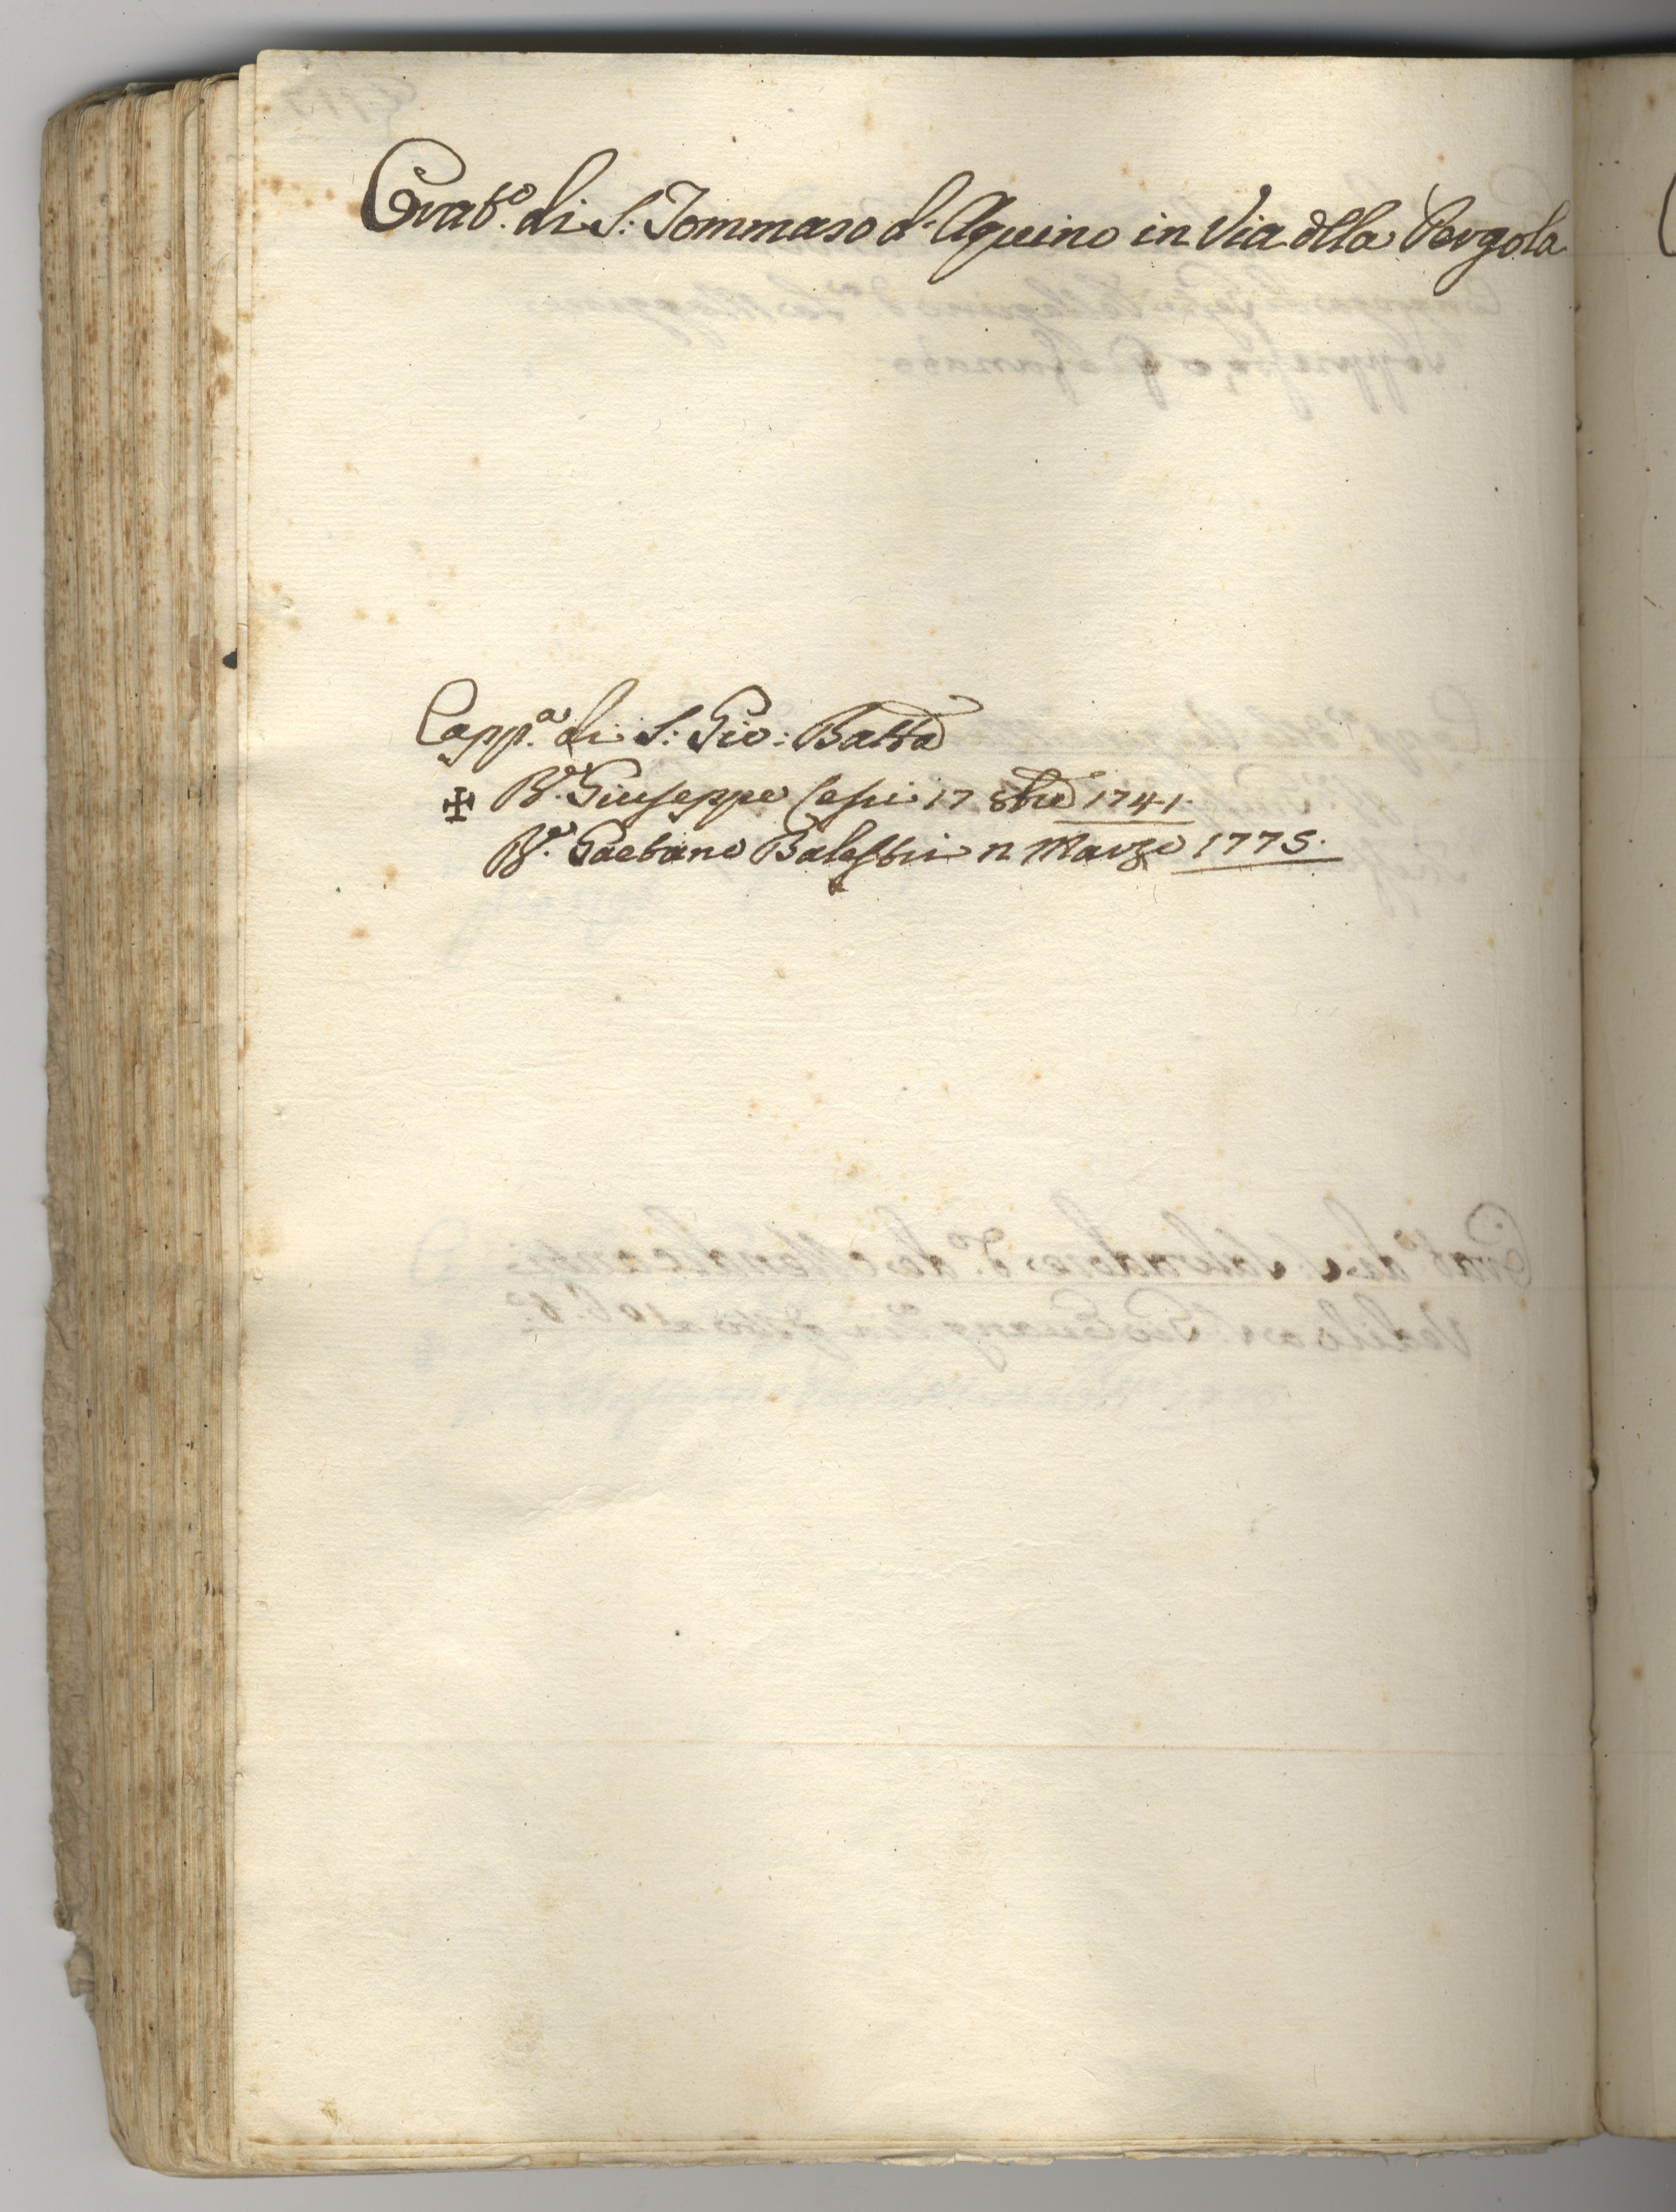 Orat.º di S: Tommaso d'Aquino in Via dlla Pergola
Capp.ª di S: Gio: Batta
✠ P.e Giuseppe Cespi 17 8bre 1741.
P.e Gaetano Balestri n Marzo 1775.